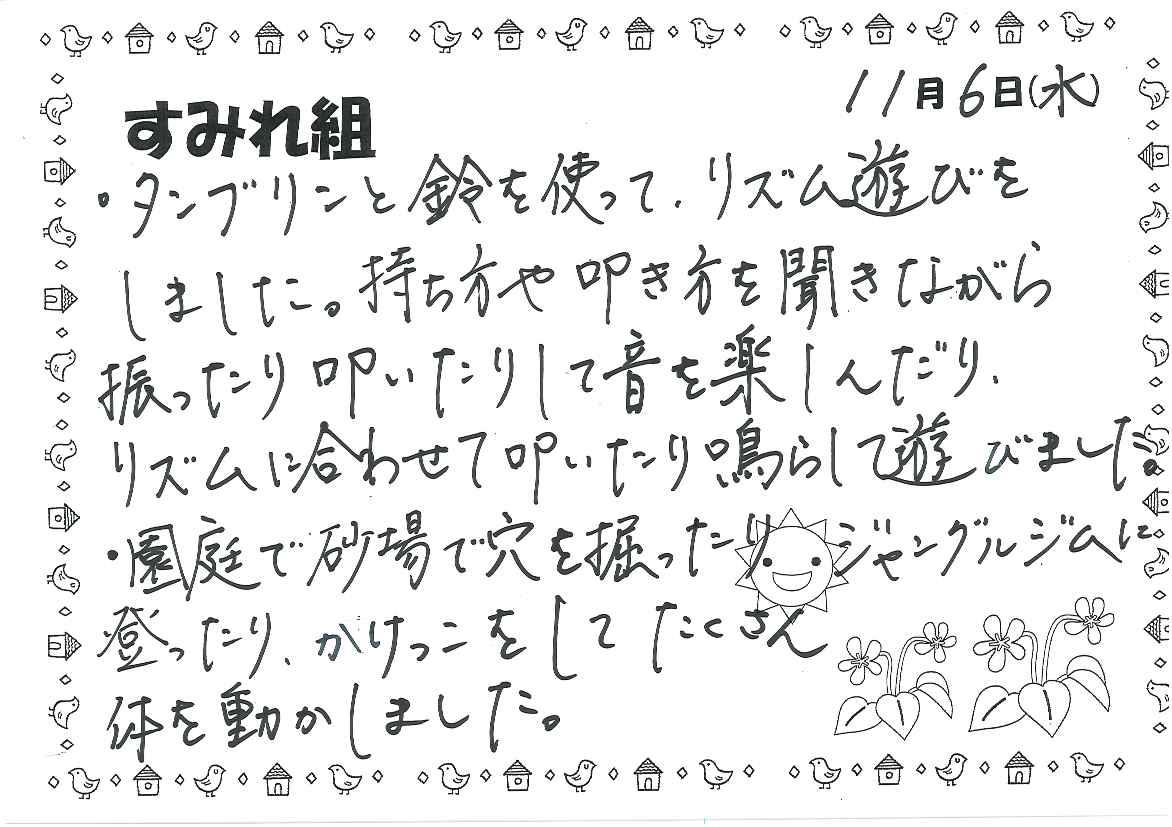 11月6日(水)
すみれ組
・タンブリンと鈴を使って、リズム遊びを
しました。持ち方や叩き方を聞きながら
振ったり叩いたりして音を楽しんだり、
リズムに合わせて叩いたり鳴らして遊びました。
・園庭で砂場で穴を掘ったり ジャングルジムに
登ったり、かけっこをしてたくさん
体を動かしました。